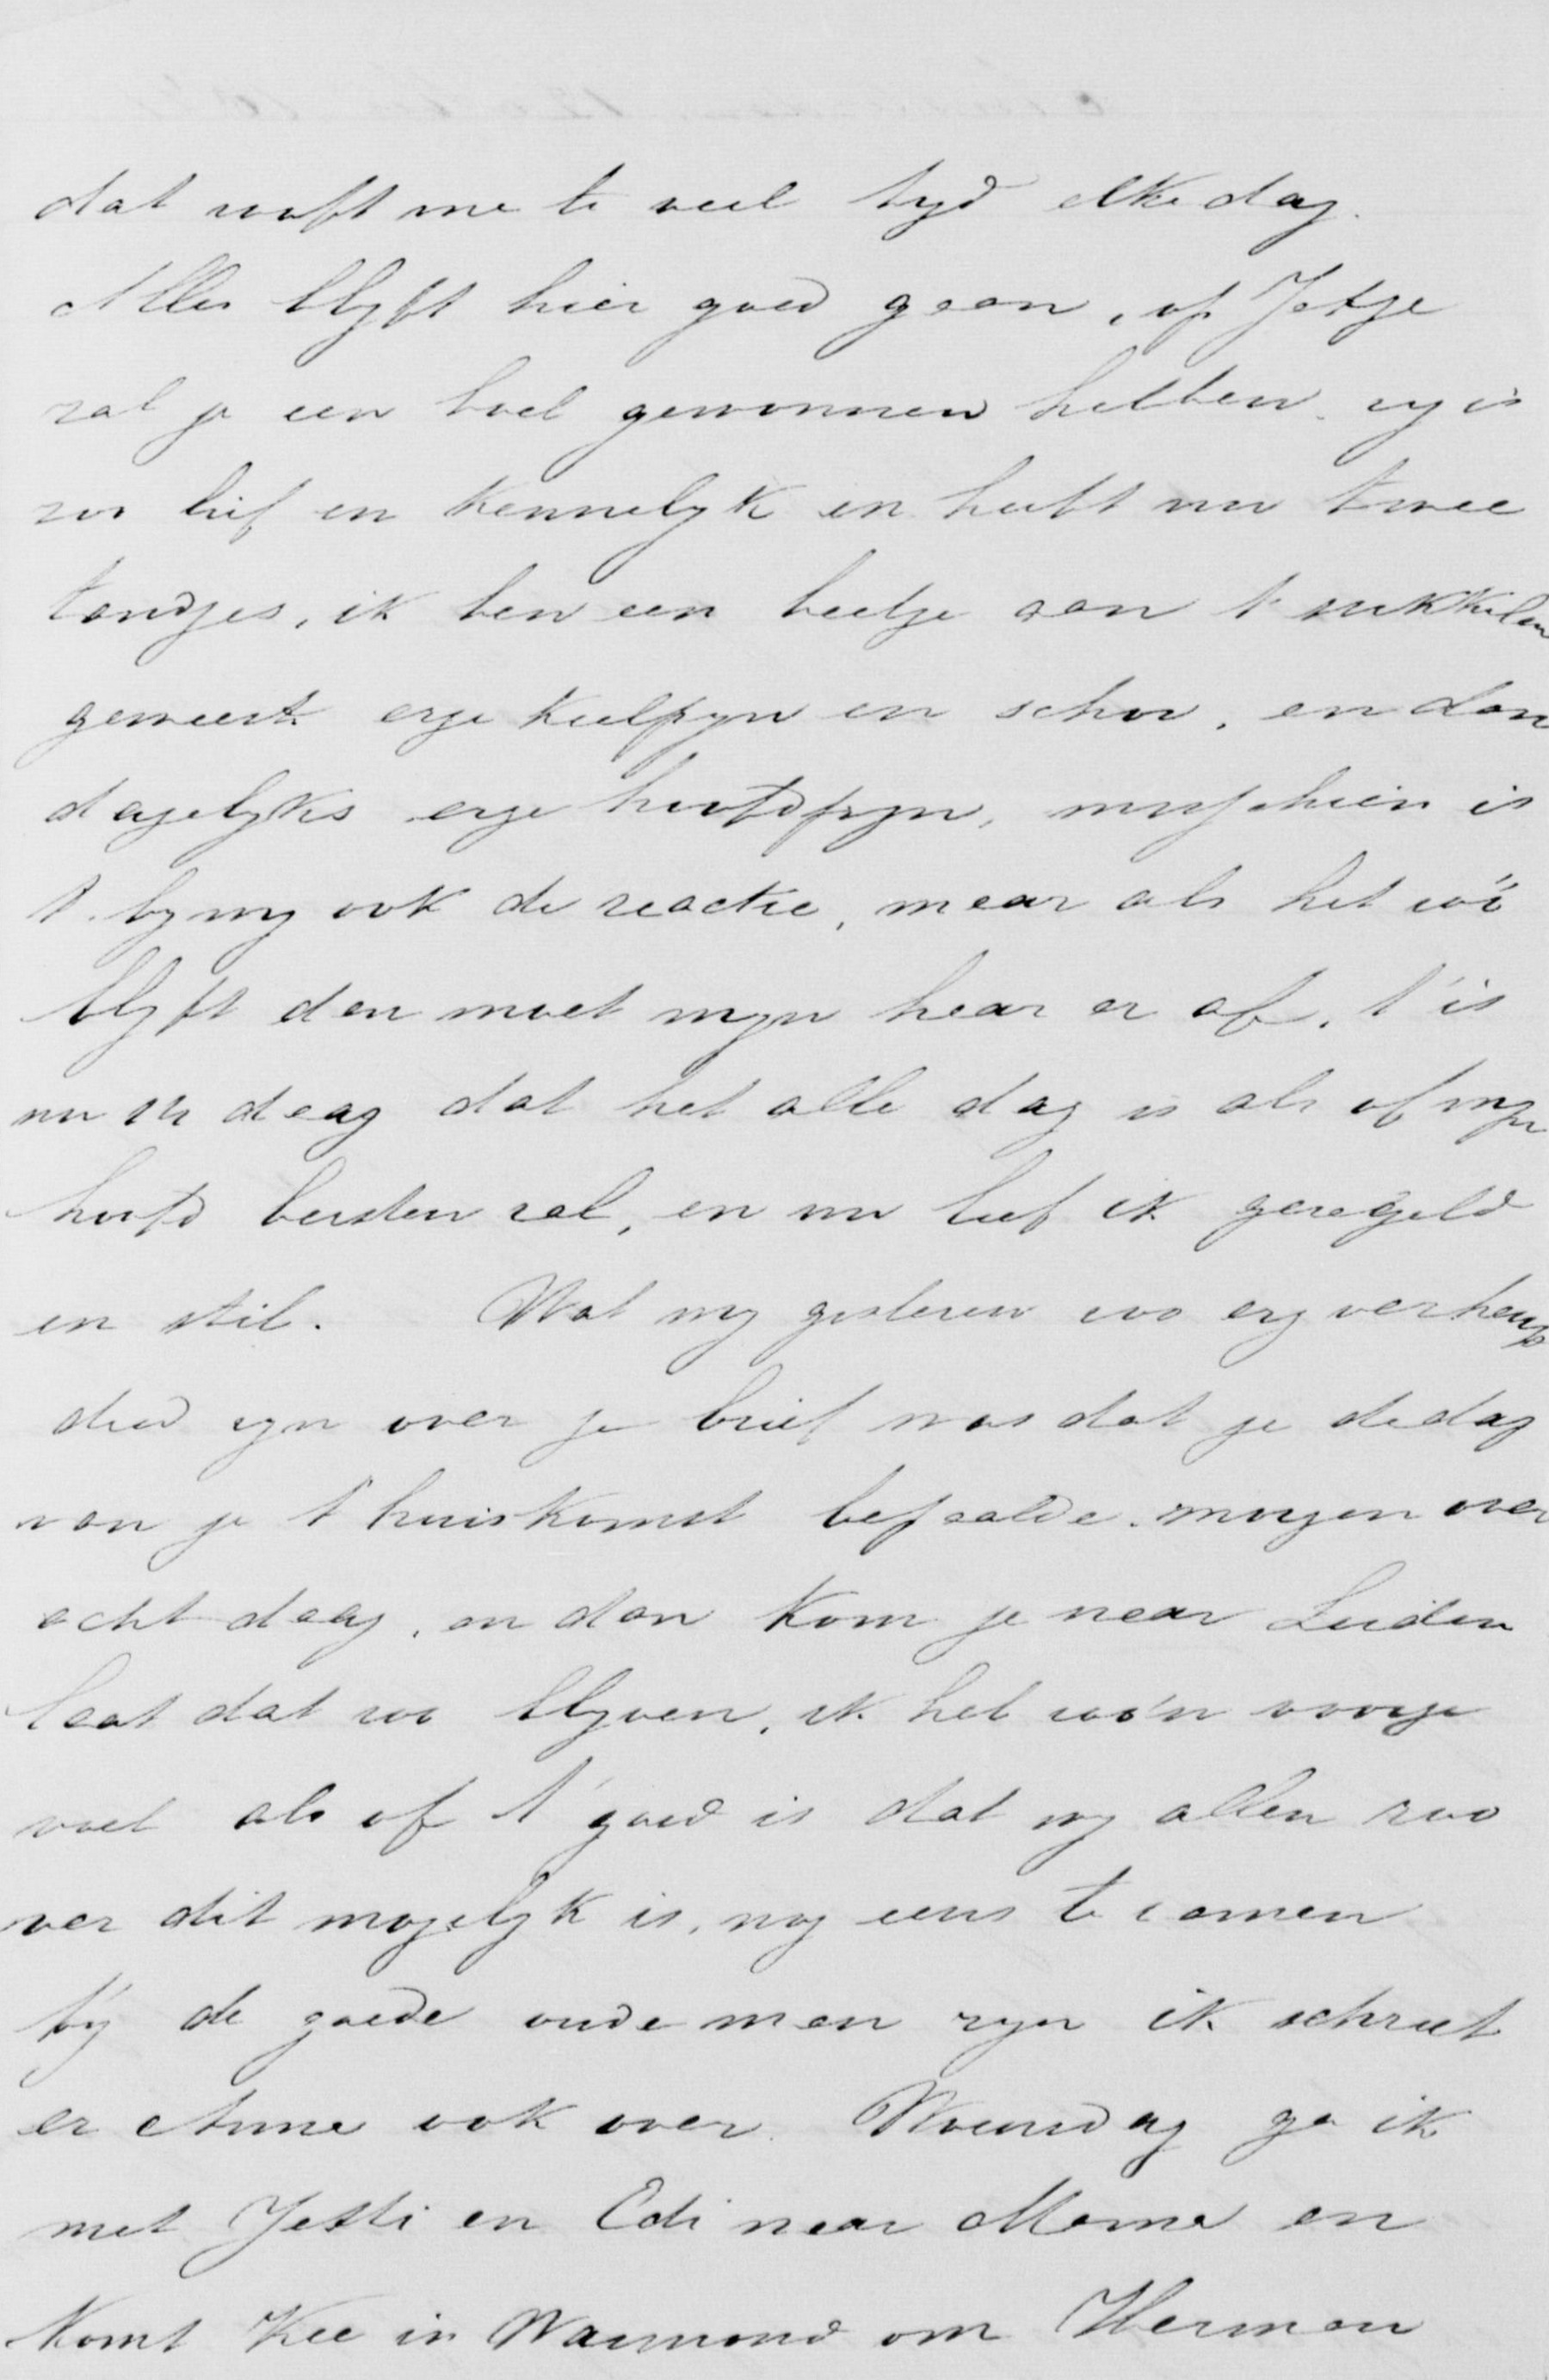 dat rooft me te veel tyd elke dag.
Alles blyft hier goed gaan, op Jetje
zal je een boel gewonnen hebben. zy is
zoo lief en kennelyk en heeft nu twee
tandjes, ik ben een beetje aan t sukkelen
geweest erge keelpyn en schor, en dan
dagelyks erge hoofdpyn, misschien is
t by my ook de reactie, maar als het zoó
blyft dan moet myn haar er af, t' is
nu deag dat het alle dag is als of myn
hoofd bersten zal, en nu leef ik geregeld
en stil. Wat my gisteren zoo erg verheug
deed zyn over je brief was dat je de dag
van je t'huiskomst bepaalde. morgen over
acht daag, en dan kom je naar Leiden
laat dat zoo blyven, ik heb zoo'n voorge
voel als of t' goed is dat wy allen zoo
ver dit mogelyk is, nog eens te zamen
by de goede oude man zyn ik schreef
er Anna ook over. Woensdag ga ik
met Jetti en Edi naar Mama en
komt Kee in Warmond om Herman